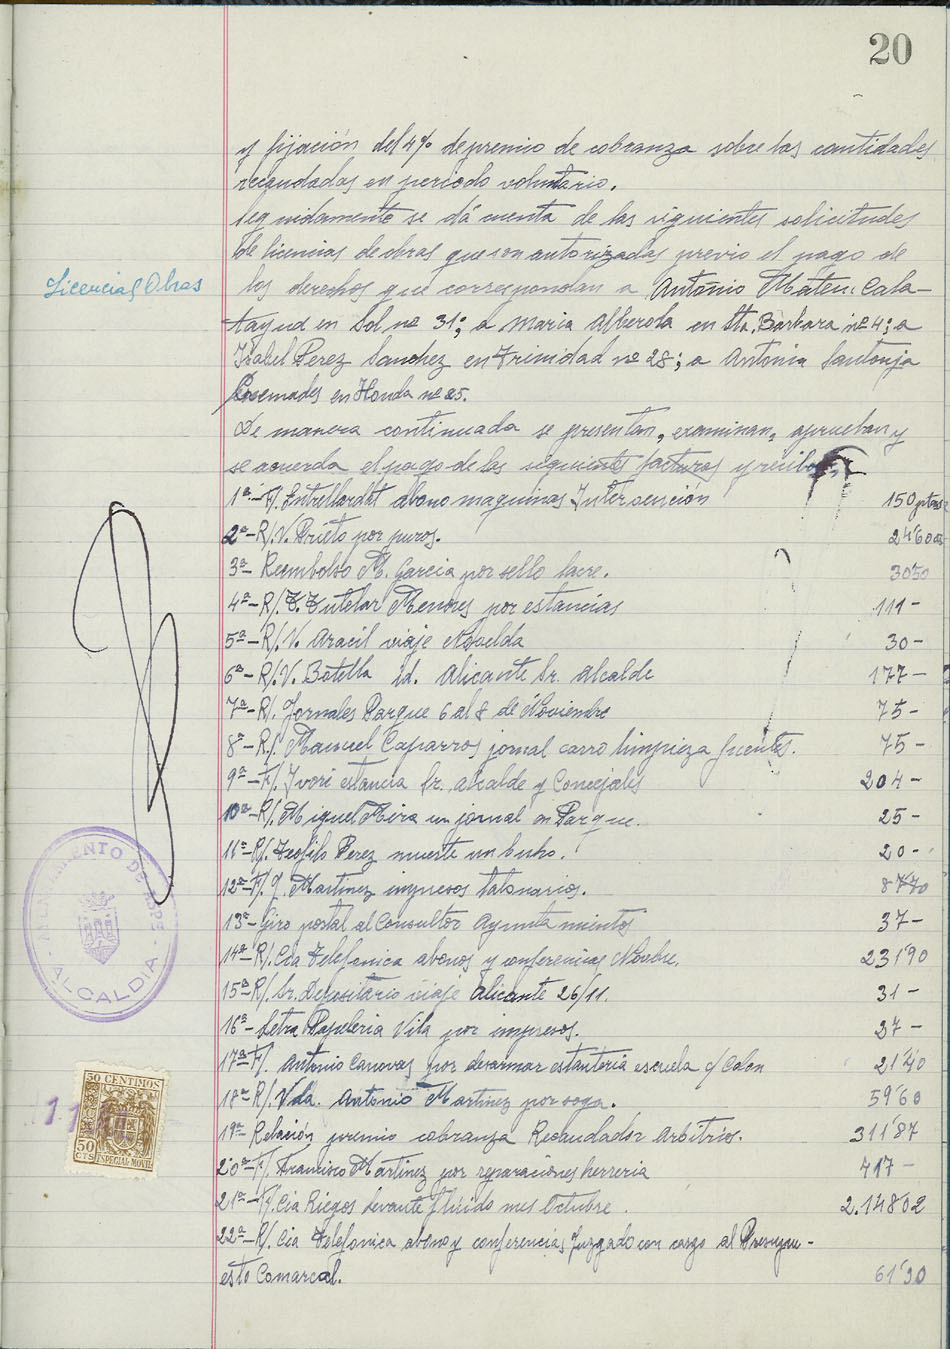 20
y fijación del 4% de premio de cobranza sobre las cantidades
recaudadas en periodo voluntario.
Seguidamente se dá cuenta de las siguientes solicitudes
de licencias de obras que son autorizadas previo el pago de
Licencias Obras
los derechos que correspondan a Antonio Máten Cala-
tayud en Sol nº 31; a Maria Alberola en Sta. Barbara nº 4; a
Isabel Perez Sanchez en Trinidad nº 28; a Antonia Santonja
en Honda nº 25.
De manera continuada se presentan, examinan, aprueban y
se acuerda el pago de las siguientes facturas y recibos
1ª.- F/. abono maquinas Intervención 150 ptas
2ª- R/. V. Prieto por puros. 24'60
3ª- Reembolso M. Garcia por sello lacre. 30'50
4ª- R/. T. Tutelar Menores por estancias 111-
5ª- R/. V. Aracil viaje Novelda 30-
6ª- R/. V. Botella id. Alicante Sr. Alcalde 177-
7ª- R/. Jornales Parque 6 al 8 de Noviembre 75-
8ª- R/. Manuel Caparros jornal carro limpieza fuentes. 75-
9ª- F/. Ivori estancia Sr. Alcalde y Concejales 204-
10ª- R/. Miguel Mira un jornal en Parque. 25-
11ª- R/. Teofilo Perez muerte un buho. 20-
12ª- F/. J. Martinez impresos talonarios. 87'70
13ª- Giro postal al Consultor Ayuntamientos 37-
14ª- R/. Cia Telefonica abonos y conferencias Novbre. 231'90
15ª- R/. Sr. Depositario viaje Alicante 26/11. 31-
16ª- Letra Papeleria Vila por impresos. 37-
17ª- F/. Antonio Canovas por desarmar estanteria escuela c/ Colon 21'40
18ª- R/. Vda. Antonio Martinez por soga. 59'60
19ª- Relación premio cobranza Recaudador Arbitrios. 311'87
20ª- F/. Francisco Martinez por reparaciones herreria 417-
21ª- F/. Cia Riegos Levante flúido mes Octubre. 2.148'02
22ª- R/. Cia Telefonica abono y conferencias Juzgado con cargo al Presupu-
esto Comarcal. 61'90
AYUNTAMIENTO DE ASPE - ALCALDIA
50 CENTIMOS
50
CTS
ESPECIAL MOVIL